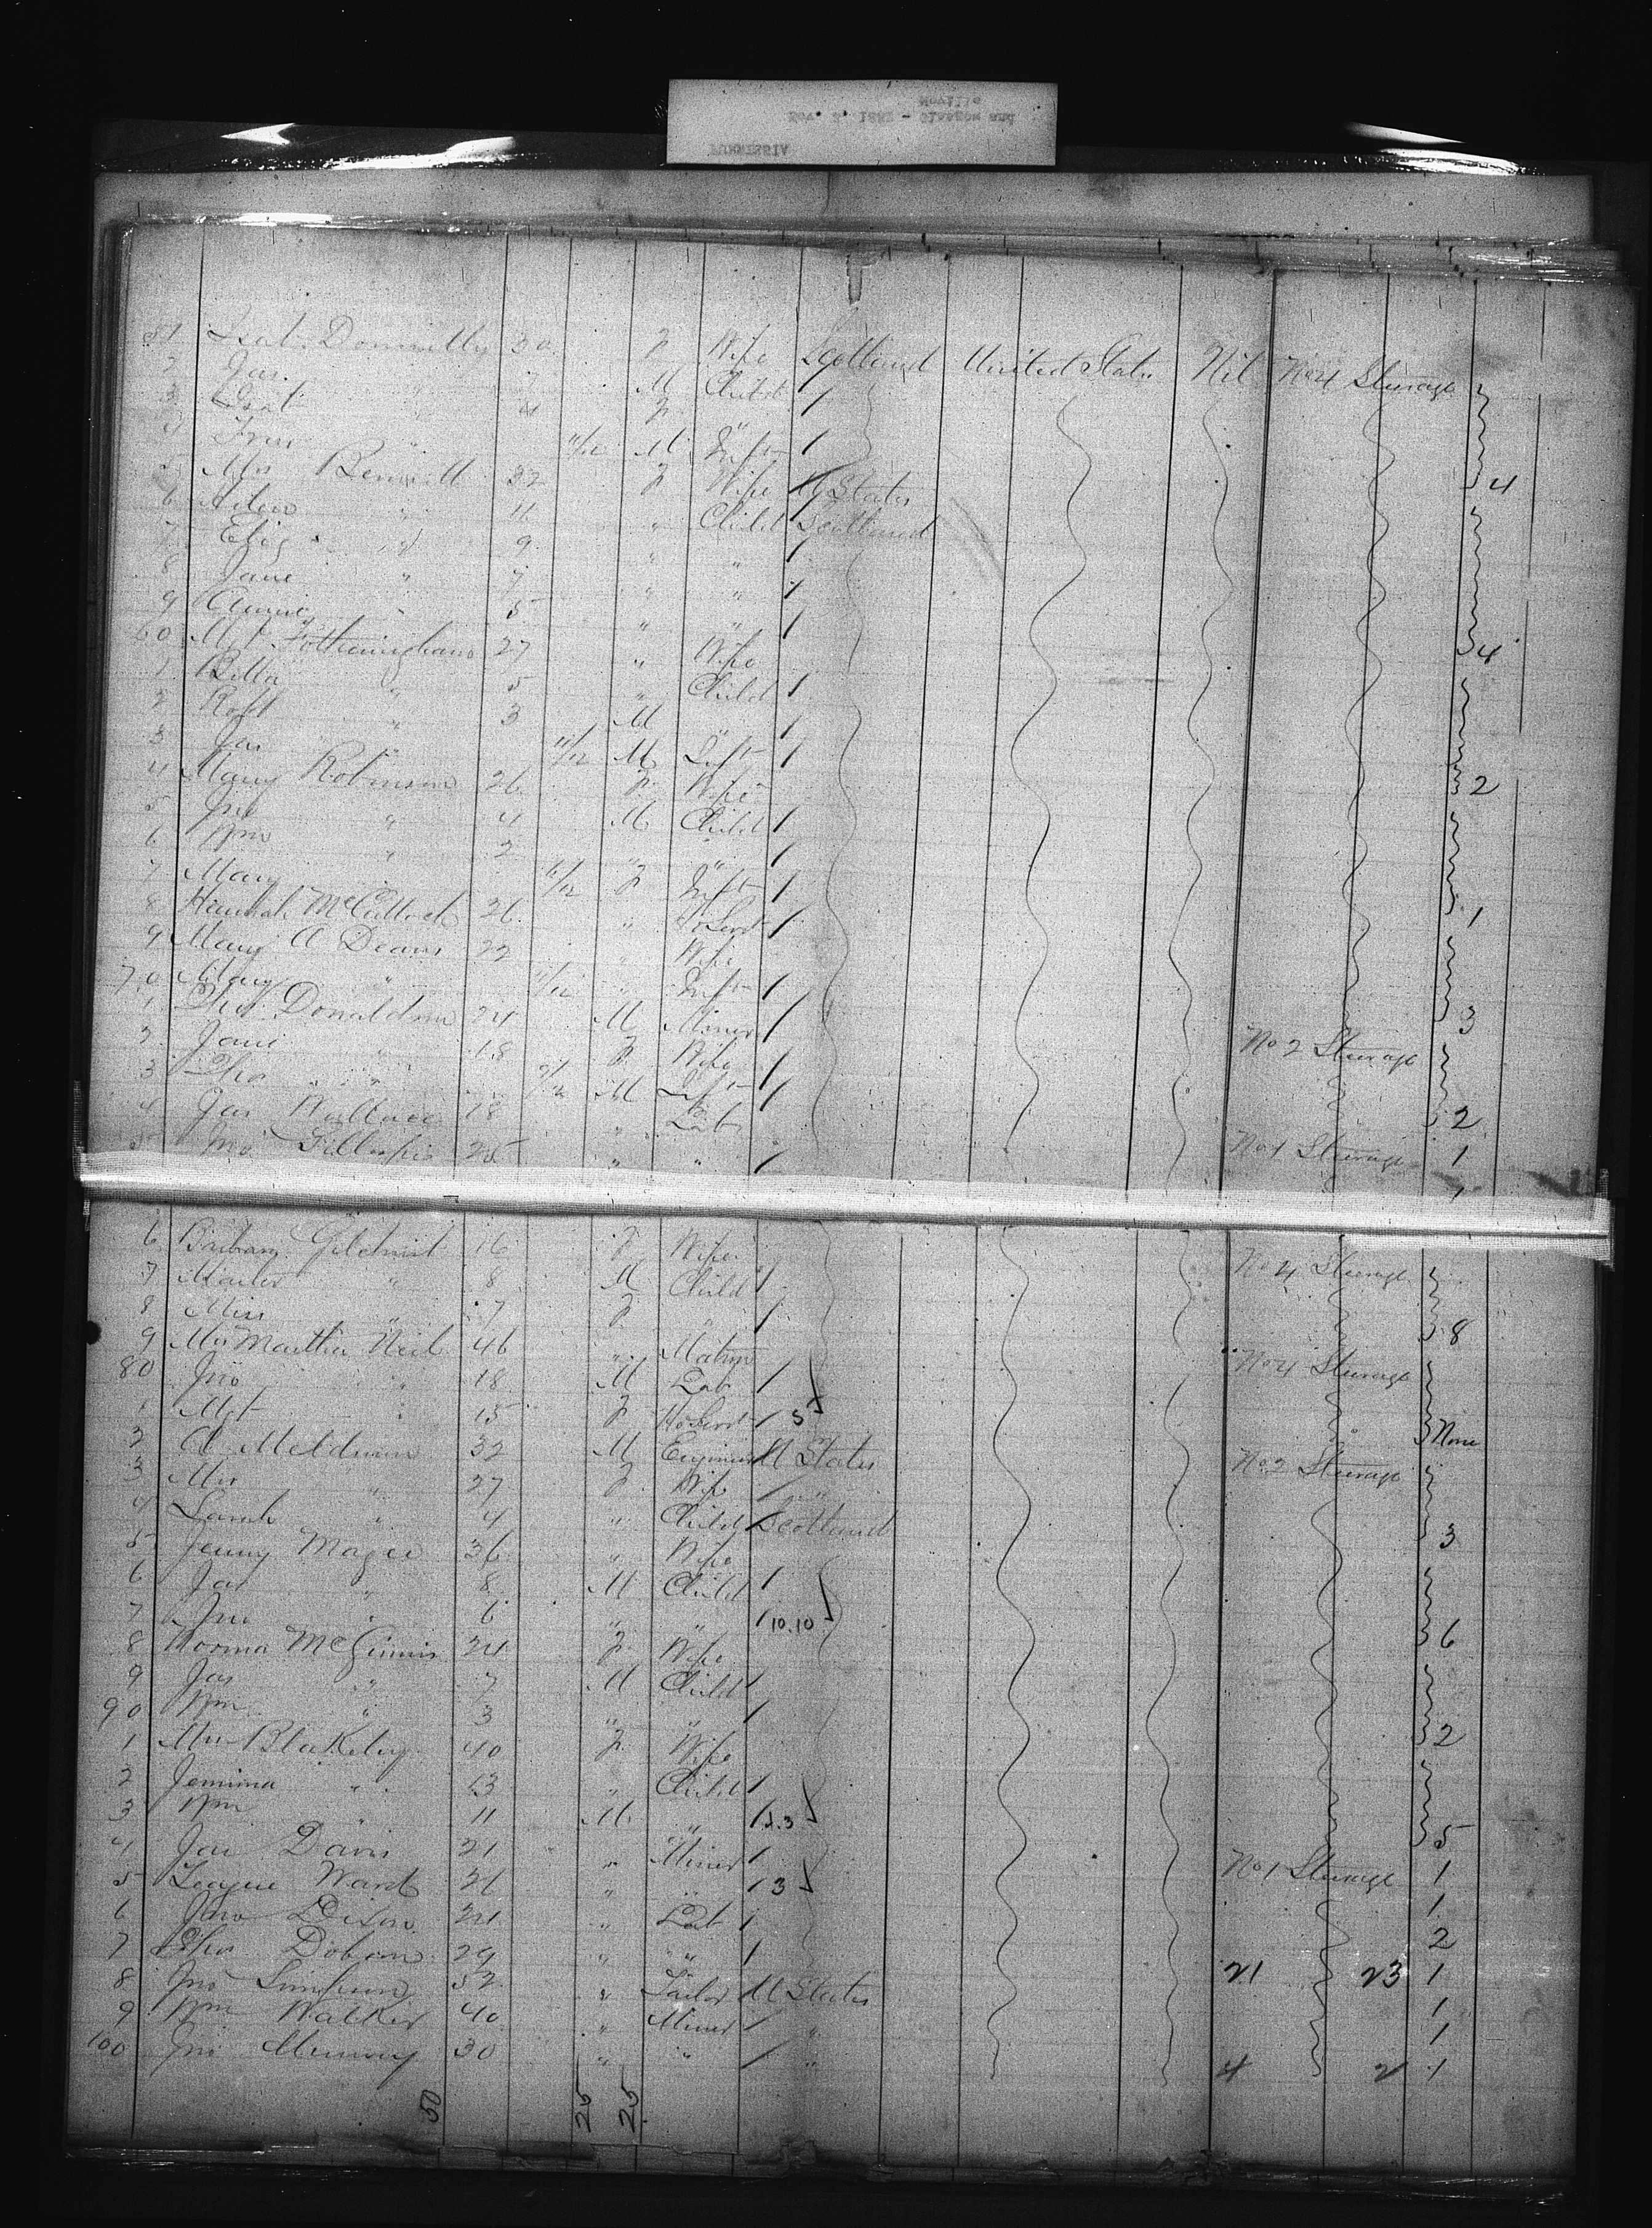 FURNESSIA
Nov. 2, 1882 - Glasgow and
Moville
51 Isab. Donnelly 30 F Wife Scotland United States Nil No 4 Steerage
2 Jas " 7 M Child
3 Isab " 4 F "
4 " 11/12 M Inft
5 Mrs 32 F Wife U States 4
6 Helen " 11 " Child Scotland
7 Eliz " 9 " "
8 Jane " 7 " "
9 Annie " 5 " "
60 Mrs Fotheringham 27 " Wife 4
1 Bella " 5 " Child
2 Robt " 3 M "
3 Jas " 11/12 M Inft
4 Mary Robinson 26 F Wife 2
5 Jno " 4 M Child
6 Wm " 2 " "
7 Mary 11/12 F Inft
8 Hannah McCulloch 26 " Ho Servt 1
9 Mary A Deans 22 " Wife
70 Mary " 11/12 " Inft
1 Thos Donaldson 24 M Miner 3
2 Jane " 18 F Wife No 2 Steerage
3 Thos " M Inft
4 Jas Wallace 18 " Lab 2
5 Jno Gillespie 25 " " No 1 Steerage 1
1
6 Barbara Gilchrist 26 F Wife No 4 Steerage
7 Master " 8 M Child
8 Miss " 7 F " 8
9 Mrs Martha Neil 46 " Matron No 4 Steerage
80 Jno " 18 M Lab
1 Mgt " 15 F Ho Servt 5 None
2 A Meldrum 32 M Engineer U States No 2 Steerage
3 Mrs " 27 F Wife "
4 Sarah " 4 " Child Scotland 3
5 Jenny Magee 36 " Wife
6 Jas " 8 M Child
7 Jno " 6 " " 10.10 6
8 Norma McGinnis 24 F Wife
9 Jas " 7 M Child
90 Wm " 3 " " 2
1 Mrs Blakeley 40 F Wife
2 Jemima " 13 " Child
3 Wm " 11 M " 5
4 Jas Davis 21 " Miner No 1 Steerage 1
5 George Ward 26 " " 3 1
6 Jno Dixon 24 " Lab 2
7 Thos Dobson 29 " " 21 23 1
8 Jno Simpson 52 " Tailor U States 1
9 Wm Walker 40 " Miner " 1
100 Jno Murray 30 " " " 4 2 1
50 25 25